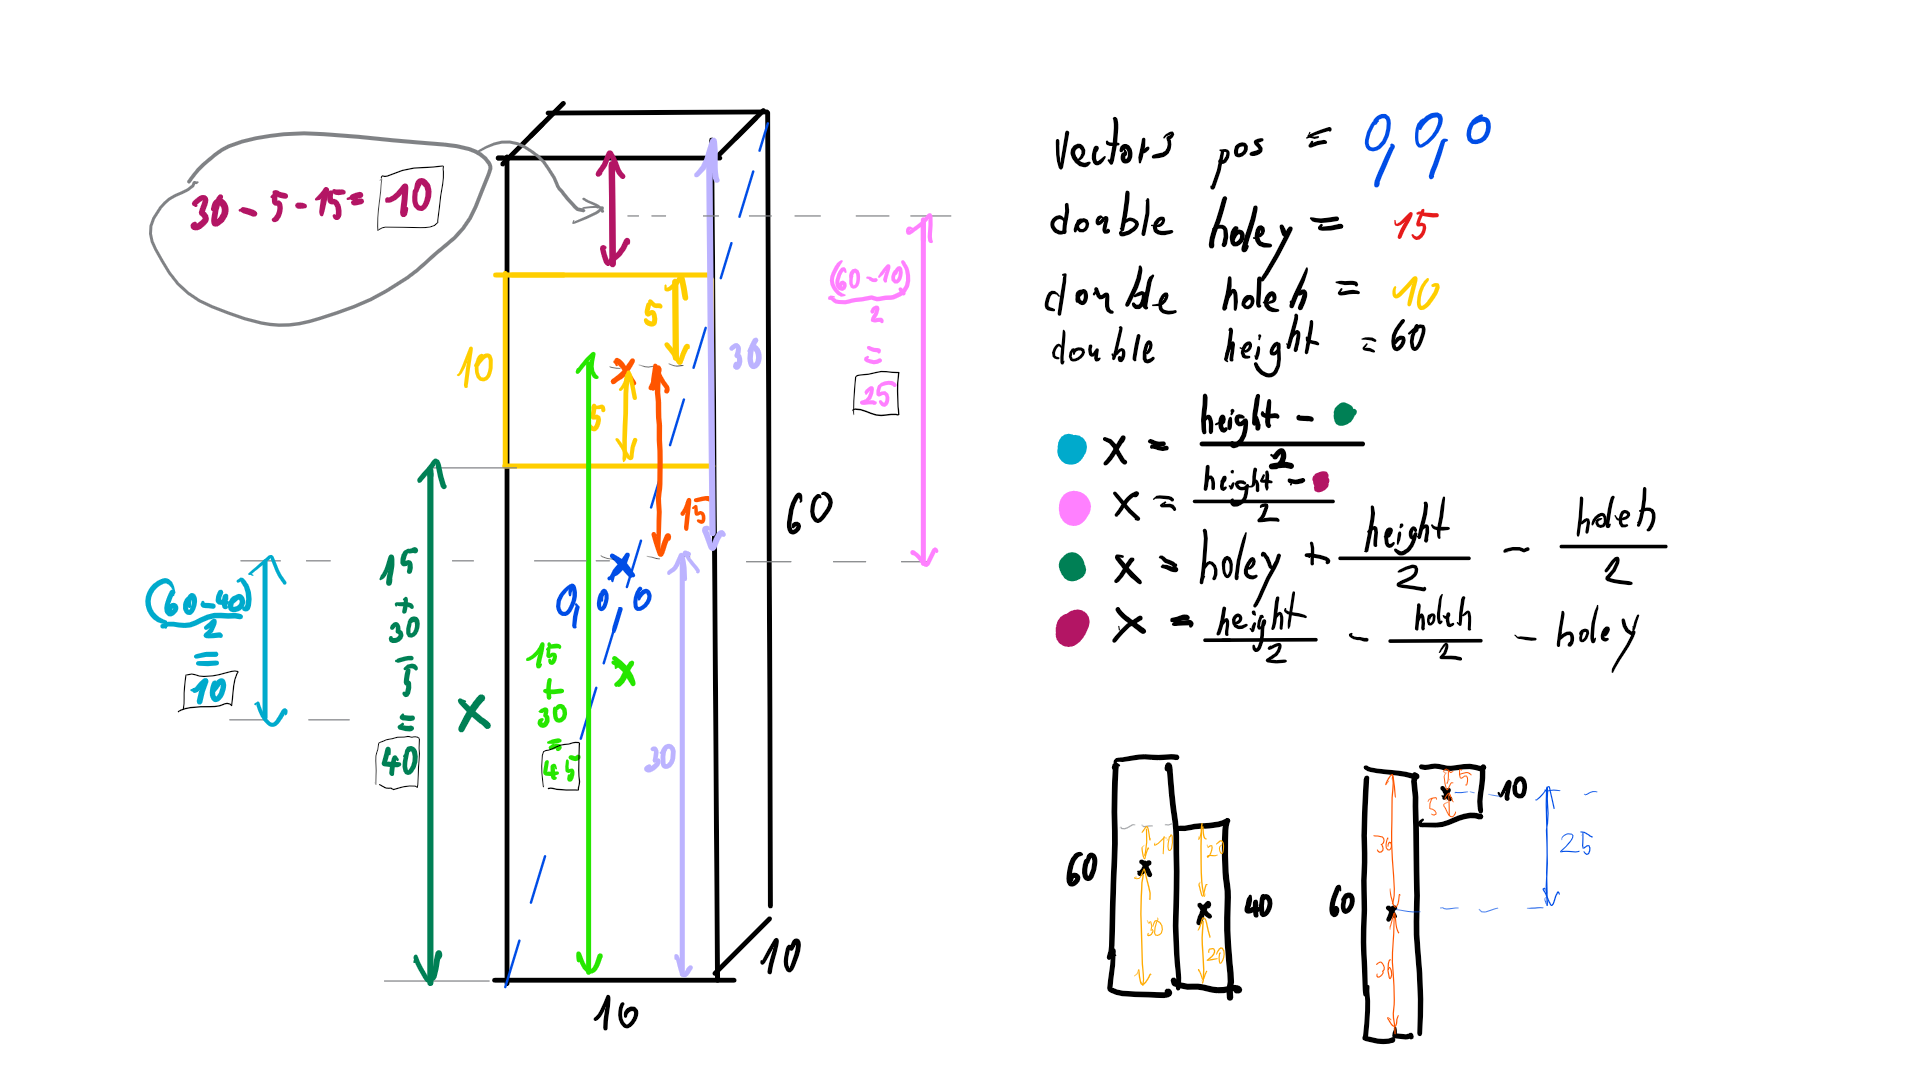 30 - 5 - 15 = 10
10
5
5
30
15
60
(60-10)
2
=
25
(60-40)
2
=
10
15
+
30
-
5
=
40
x
0, 0, 0
15
+
30
=
45
x
30
10
10
vector3 pos = 0, 0, 0
double holey = 15
double holeh = 10
double height = 60
x = height -
2
x = height -
2
x = holey + height / 2 - holeh / 2
x = height / 2 - holeh / 2 - holey
60
10
30
20
20
40
60
30
30
5
5
10
25